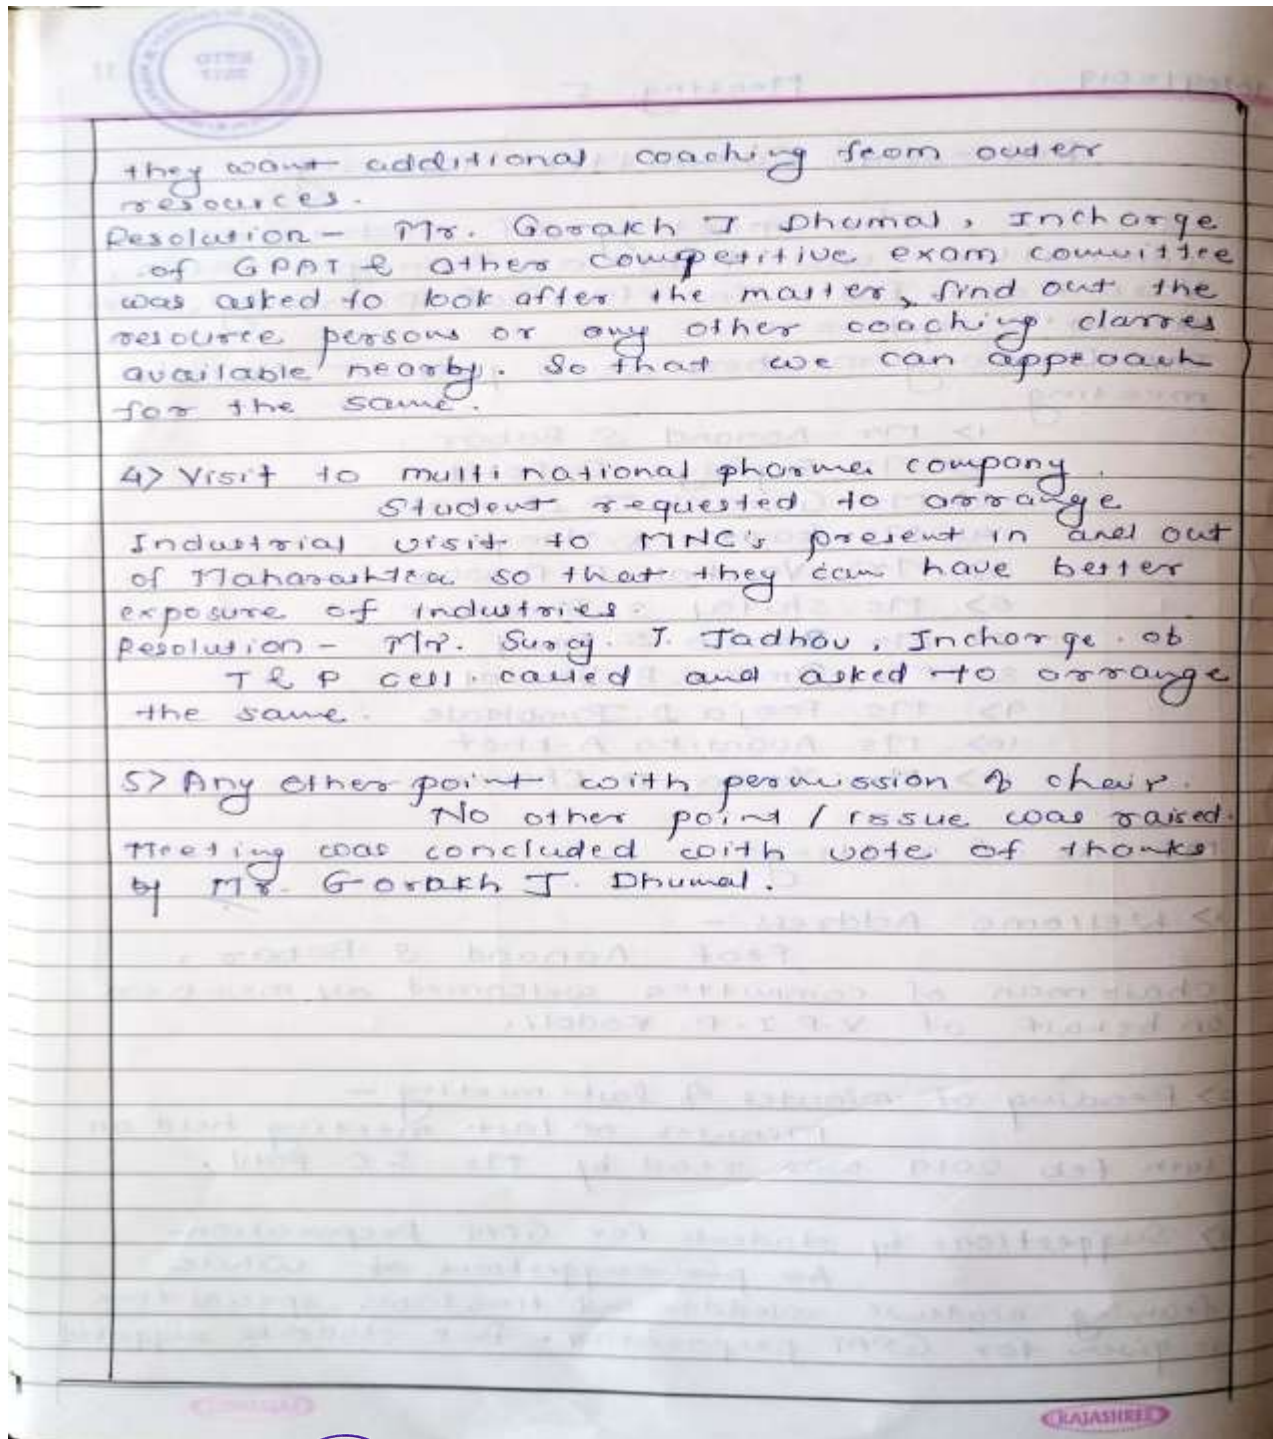 they want additional coaching from outer
resources.
Resolution - Mr. Gorakh J Dhumal, Incharge
of GPAT & other competitive exam committee
was asked to look after the matter, find out the
resource persons or any other coaching classes
available nearby. So that we can approach
for the same.
4> Visit to multinational pharma company.
Student requested to arrange
Industrial visit to MNC's present in and out
of Maharashtra so that they can have better
exposure of industries.
Resolution - Mr. Suraj. T. Jadhav, Incharge of
T & P cell called and asked to arrange
the same.
5> Any other point with permission of chair.
No other point / issue was raised.
Meeting was concluded with vote of thanks
by Mr. Gorakh J. Dhumal.
RAJASHREE